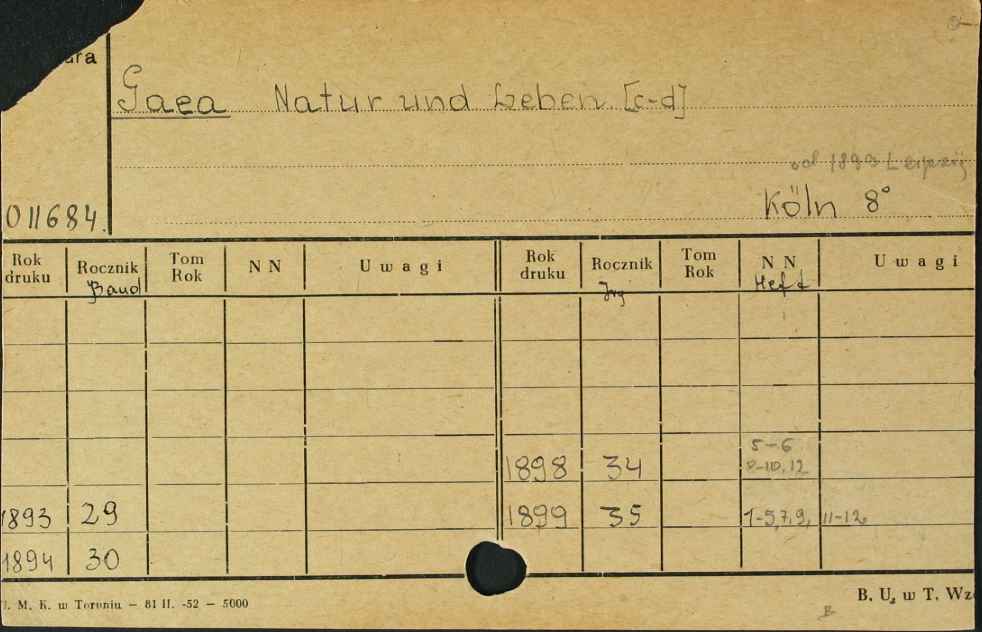 ura
Gaea Natur und Leben [c-d]
od 1893 Leipzig
011684. Köln 8°
Rok druku Rocznik Tom Rok N N Uwagi Rok druku Rocznik Tom Rok N N Uwagi
Band Jrg Heft
5-6
1898 34 8-10, 12
1893 29 1899 35 1-5, 7, 9, 11-12
1894 30
M. K. w Toruniu — 81 II. -52 — 5000
B. U. w T. Wz